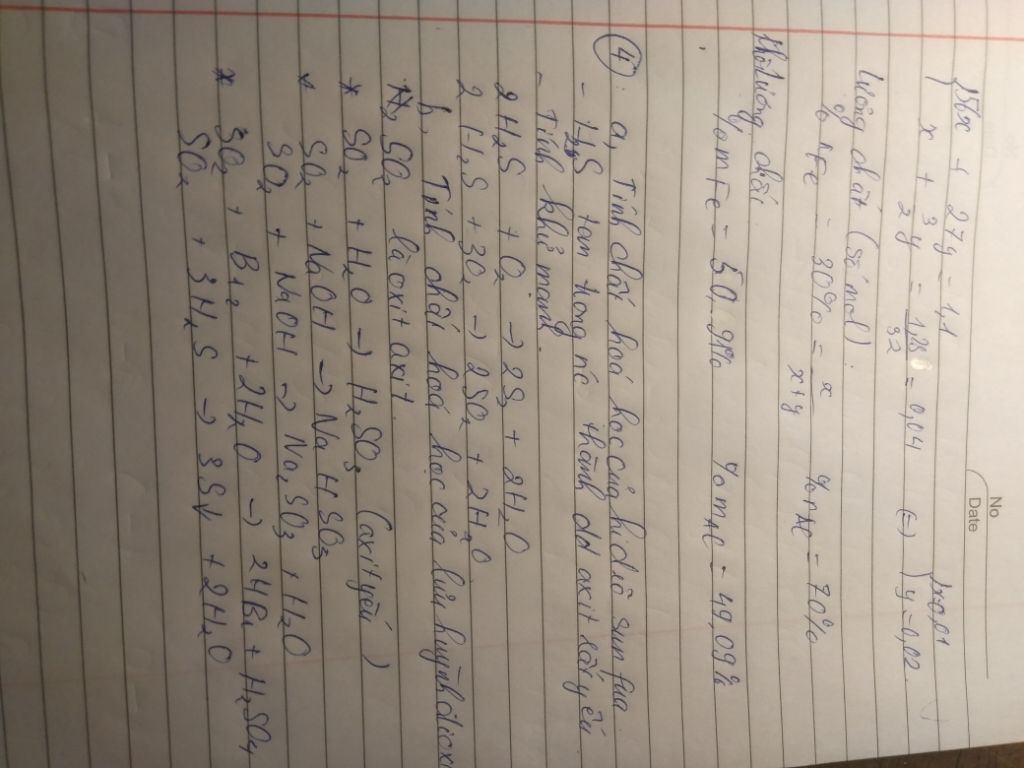 No
Date
56x + 27y = 1,1
x + 3/2 y = 1,28/32 = 0,04 (=) x=0,01 y=0,02
Lượng chất (số mol):
% nFe = 30% = x/x+y % nAl = 70%
Khối lượng chất:
% mFe = 50,91% % mAl = 49,09%
4 a, Tính chất hoá học của hiđrô sunfua
- H₂S tan trong nc thành dd axit rất yếu
- Tính khử mạnh.
2H₂S + O₂ → 2S + 2H₂O
2H₂S + 3O₂ → 2SO₂ + 2H₂O
b, Tính chất hoá học của lưu huỳnh đioxit
SO₂ là oxit axit.
* SO₂ + H₂O → H₂SO₃ (axit yếu)
* SO₂ + NaOH → NaHSO₃
SO₂ + NaOH → Na₂SO₃ + H₂O
* SO₂ + Br₂ + 2H₂O → 2HBr + H₂SO₄
SO₂ + 3H₂S → 3S↓ + 2H₂O